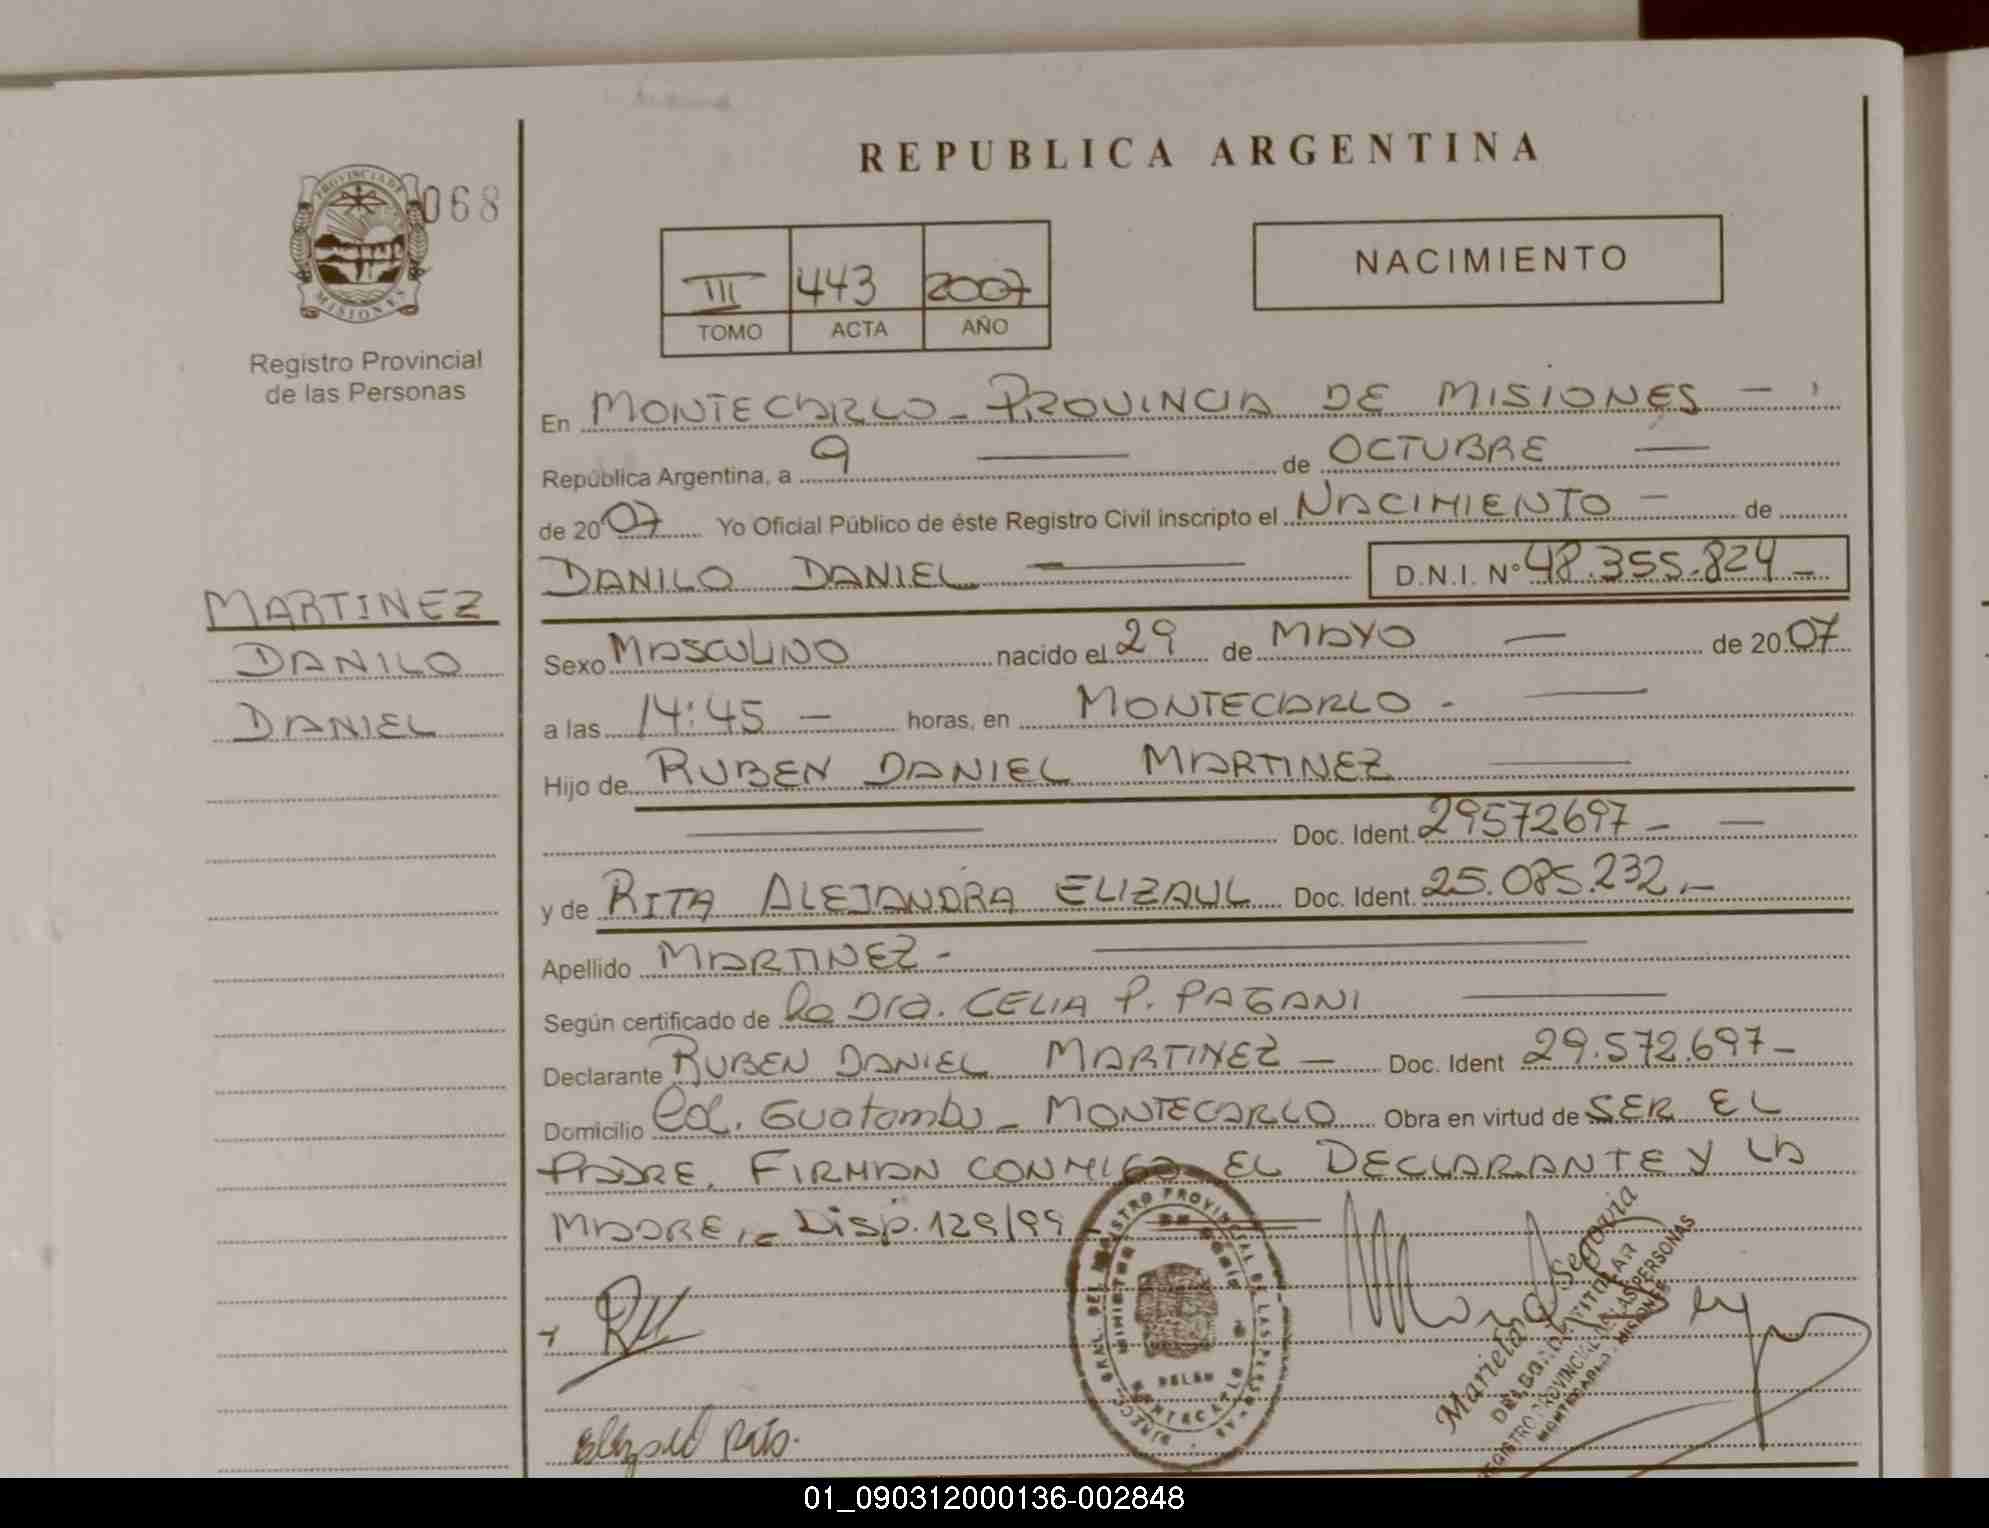 REPUBLICA ARGENTINA
PROVINCIA DE
MISIONES
068
Registro Provincial
de las Personas
III 443 2007
TOMO ACTA AÑO
NACIMIENTO
En MONTECARLO - PROVINCIA DE MISIONES -
República Argentina, a 9 de OCTUBRE
de 2007 Yo Oficial Público de éste Registro Civil inscripto el NACIMIENTO - de
DANILO DANIEL D.N.I. Nº 48.355.824 -
MARTINEZ
DANILO
DANIEL
Sexo MASCULINO nacido el 29 de MAYO de 2007
a las 14:45 - horas, en MONTECARLO -
Hijo de RUBEN DANIEL MARTINEZ
Doc. Ident. 29572697 -
y de RITA ALEJANDRA ELIZAUL Doc. Ident. 25.085.232.-
Apellido MARTINEZ -
Según certificado de la Dra. CELIA P. PAGANI
Declarante RUBEN DANIEL MARTINEZ - Doc. Ident 29.572.697 -
Domicilio Col. Guatambu - MONTECARLO Obra en virtud de SER EL
PADRE. FIRMAN CONMIGO EL DECLARANTE Y LA
MADRE.- Disp. 129/99
Mariela Segovia
TITULAR
REGISTRO PROVINCIAL DE LAS PERSONAS
MONTECARLO - MISIONES
01_090312000136-002848